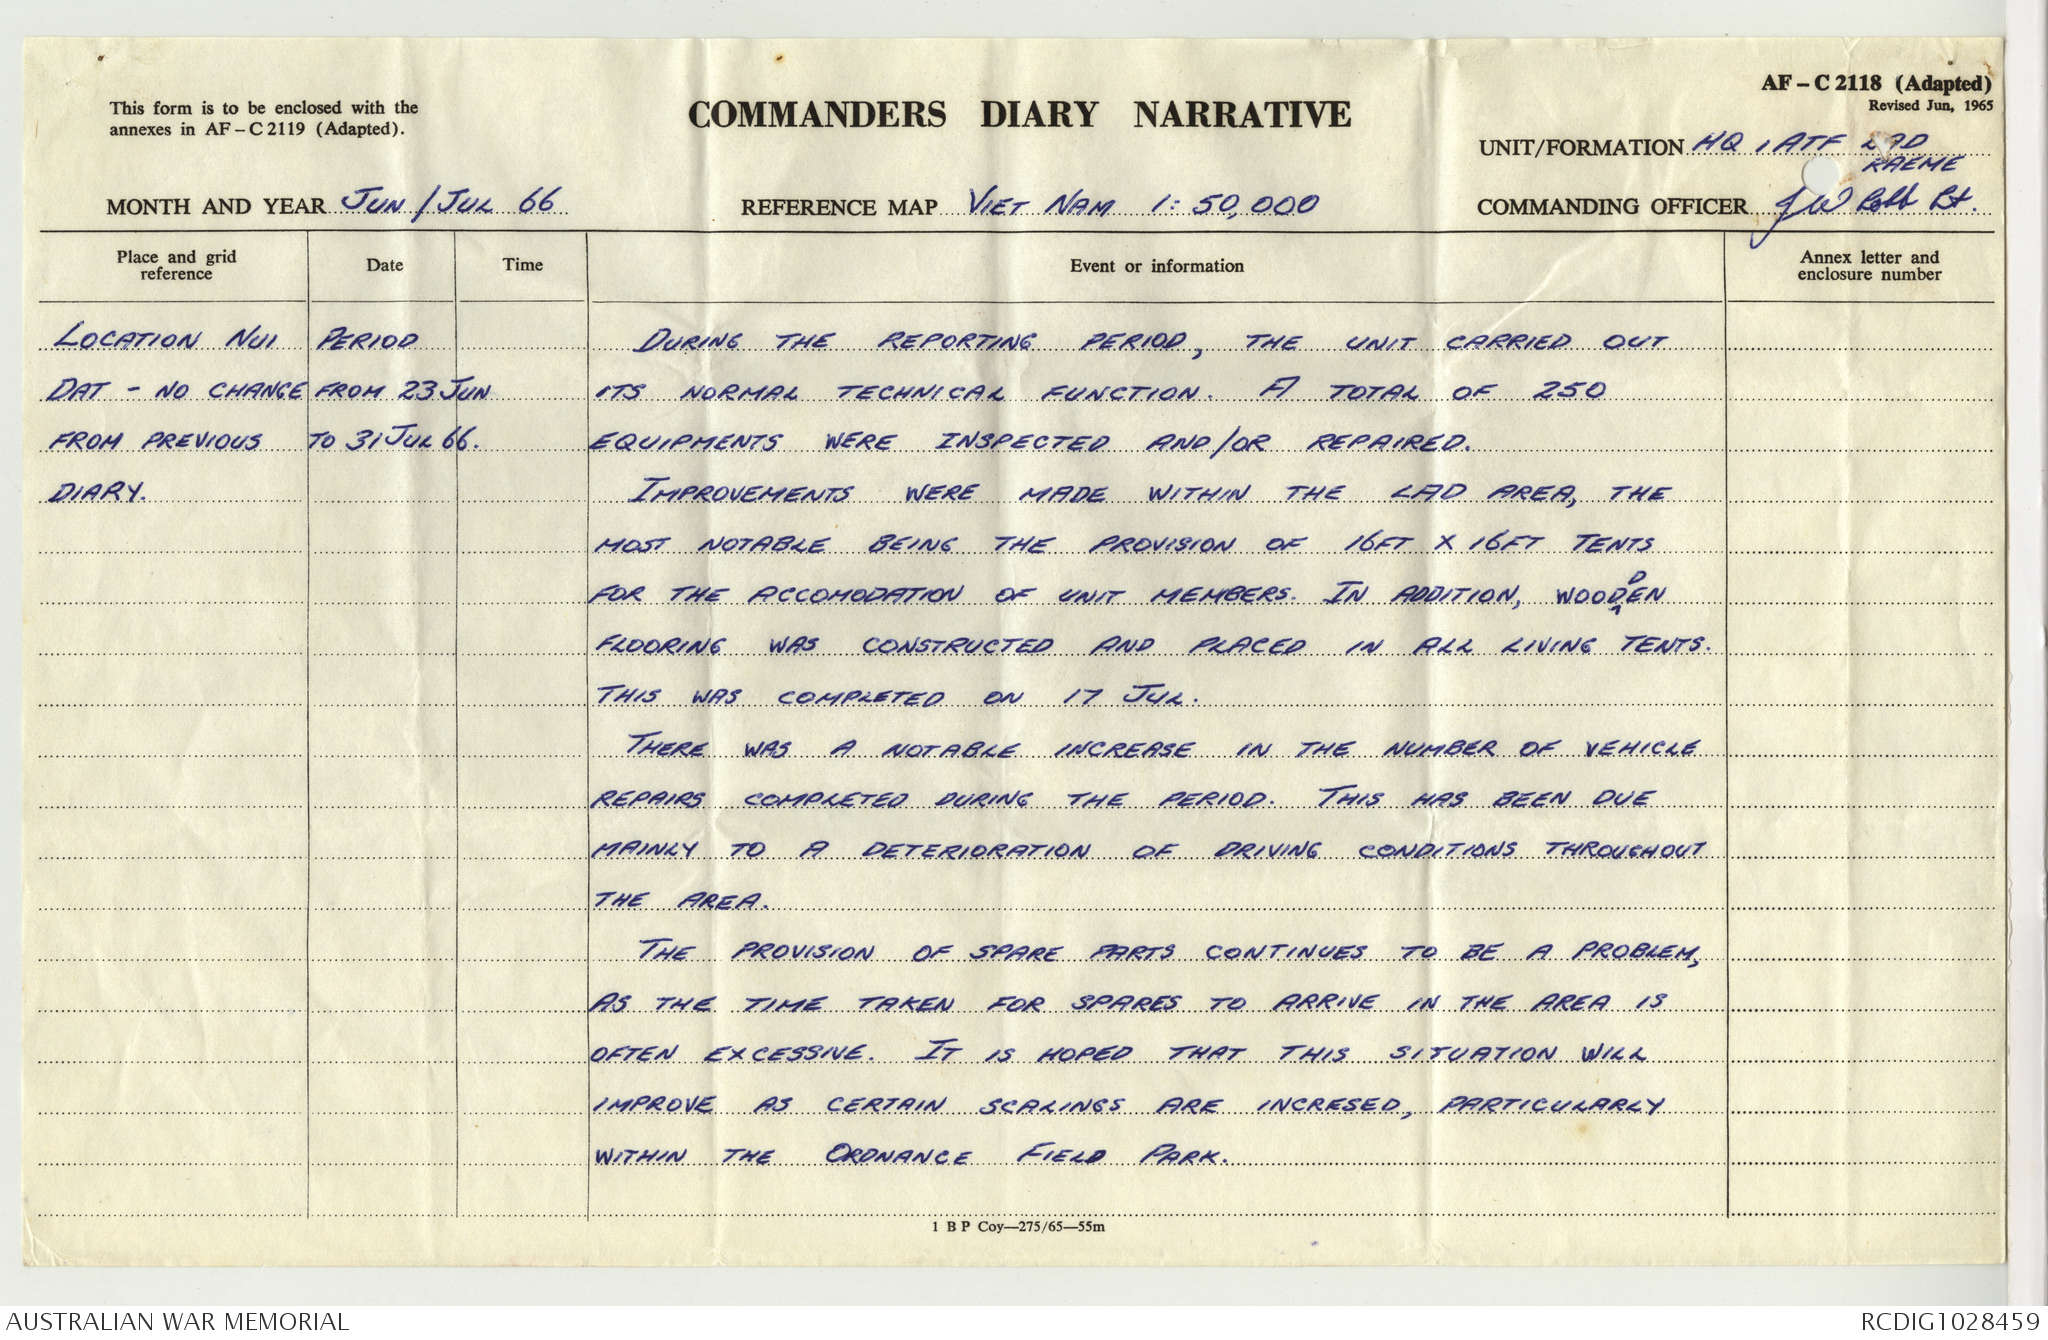 This form is to be enclosed with the
annexes in AF – C 2119 (Adapted).
COMMANDERS DIARY NARRATIVE
AF – C 2118 (Adapted)
Revised Jun, 1965
UNIT/FORMATION HQ 1 ATF LAD
RAEME
MONTH AND YEAR JUN/JUL 66
REFERENCE MAP VIET NAM 1:50,000
COMMANDING OFFICER JW Robb Lt.
Place and grid
reference
Date
Time
Event or information
Annex letter and
enclosure number
LOCATION NUI
DAT – NO CHANGE
FROM PREVIOUS
DIARY.
PERIOD
FROM 23 JUN
TO 31 JUL 66.
DURING THE REPORTING PERIOD, THE UNIT CARRIED OUT
ITS NORMAL TECHNICAL FUNCTION. A TOTAL OF 250
EQUIPMENTS WERE INSPECTED AND/OR REPAIRED.
IMPROVEMENTS WERE MADE WITHIN THE LAD AREA, THE
MOST NOTABLE BEING THE PROVISION OF 16FT X 16FT TENTS
FOR THE ACCOMODATION OF UNIT MEMBERS. IN ADDITION, WOODDEN
FLOORING WAS CONSTRUCTED AND PLACED IN ALL LIVING TENTS.
THIS WAS COMPLETED ON 17 JUL.
THERE WAS A NOTABLE INCREASE IN THE NUMBER OF VEHICLE
REPAIRS COMPLETED DURING THE PERIOD. THIS HAS BEEN DUE
MAINLY TO A DETERIORATION OF DRIVING CONDITIONS THROUGHOUT
THE AREA.
THE PROVISION OF SPARE PARTS CONTINUES TO BE A PROBLEM,
AS THE TIME TAKEN FOR SPARES TO ARRIVE IN THE AREA IS
OFTEN EXCESSIVE. IT IS HOPED THAT THIS SITUATION WILL
IMPROVE AS CERTAIN SCALINGS ARE INCRESED, PARTICULARLY
WITHIN THE ORDNANCE FIELD PARK.
1 B P Coy—275/65—55m
AUSTRALIAN WAR MEMORIAL
RCDIG1028459